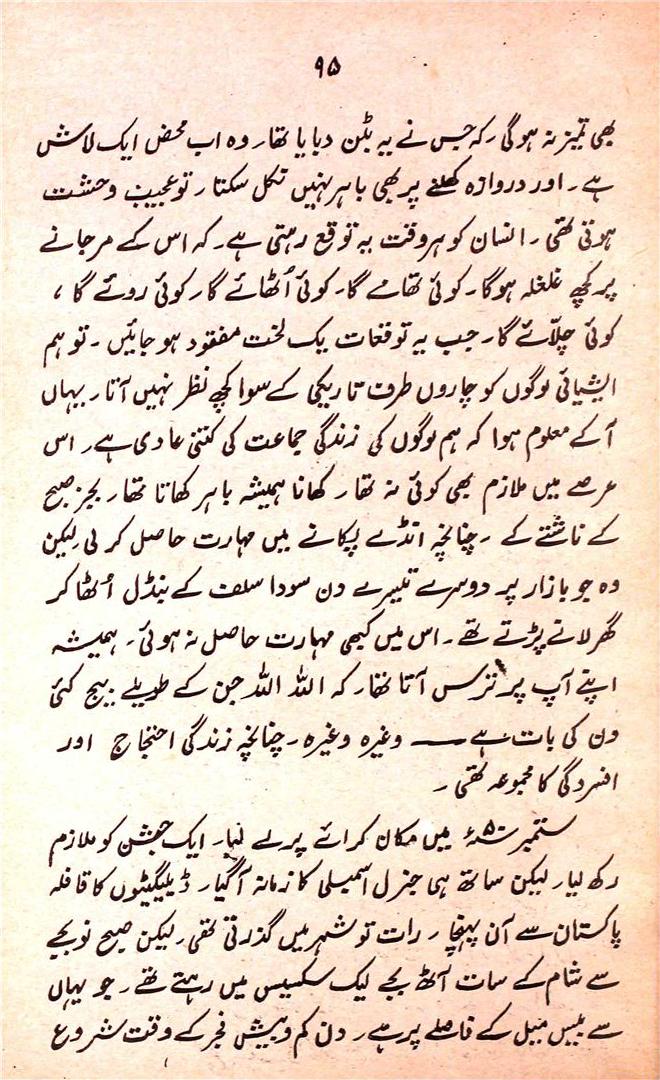 ۹۵
بھی تمیز نہ ہوگی۔ کہ جس نے یہ بٹن دبایا تھا۔ وہ اب محض ایک لاش
ہے۔ اور دروازہ کھلنے پر بھی باہر نہیں نکل سکتا۔ تو عجیب وحشت
ہوتی تھی۔ انسان کو ہر وقت یہ توقع رہتی ہے۔ کہ اس کے مر جانے
پر کچھ غلغلہ ہوگا۔ کوئی تھامے گا۔ کوئی اُٹھائے گا۔ کوئی روئے گا،
کوئی چلّائے گا۔ جب یہ توقعات یک لخت مفقود ہو جائیں۔ تو ہم
ایشیائی لوگوں کو چاروں طرف تاریکی کے سوا کچھ نظر نہیں آتا۔ یہاں
آ کے معلوم ہوا کہ ہم لوگوں کی زندگی جماعت کی کتنی عادی ہے۔ اس
عرصے میں ملازم بھی کوئی نہ تھا۔ کھانا ہمیشہ باہر کھاتا تھا۔ بجز صبح
کے ناشتے کے۔ چنانچہ انڈے پکانے میں مہارت حاصل کر لی۔ لیکن
وہ جو بازار پر دوسرے تیسرے دن سودا سلف کے بنڈل اُٹھا کر
گھر لانے پڑتے تھے۔ اس میں کبھی مہارت حاصل نہ ہوئی۔ ہمیشہ
اپنے آپ پر ترس آتا تھا۔ کہ اللہ اللہ جن کے طویلے بیچ کئی
دن کی بات ہے —— وغیرہ وغیرہ۔ چنانچہ زندگی احتجاج اور
افسردگی کا مجموعہ تھی۔
ستمبر ۵۰ء میں مکان کرائے پر لے لیا۔ ایک حبشن کو ملازم
رکھ لیا۔ لیکن ساتھ ہی جنرل اسمبلی کا زمانہ آ گیا۔ ڈیلیگیٹوں کا قافلہ
پاکستان سے آن پہنچا۔ رات تو شہر میں گذرتی تھی۔ لیکن صبح نو بجے
سے شام کے سات آٹھ بجے لیک سکسیس میں رہتے تھے۔ جو یہاں
سے بیس میل کے فاصلے پر ہے۔ دن کم و بیش فجر کے وقت شروع